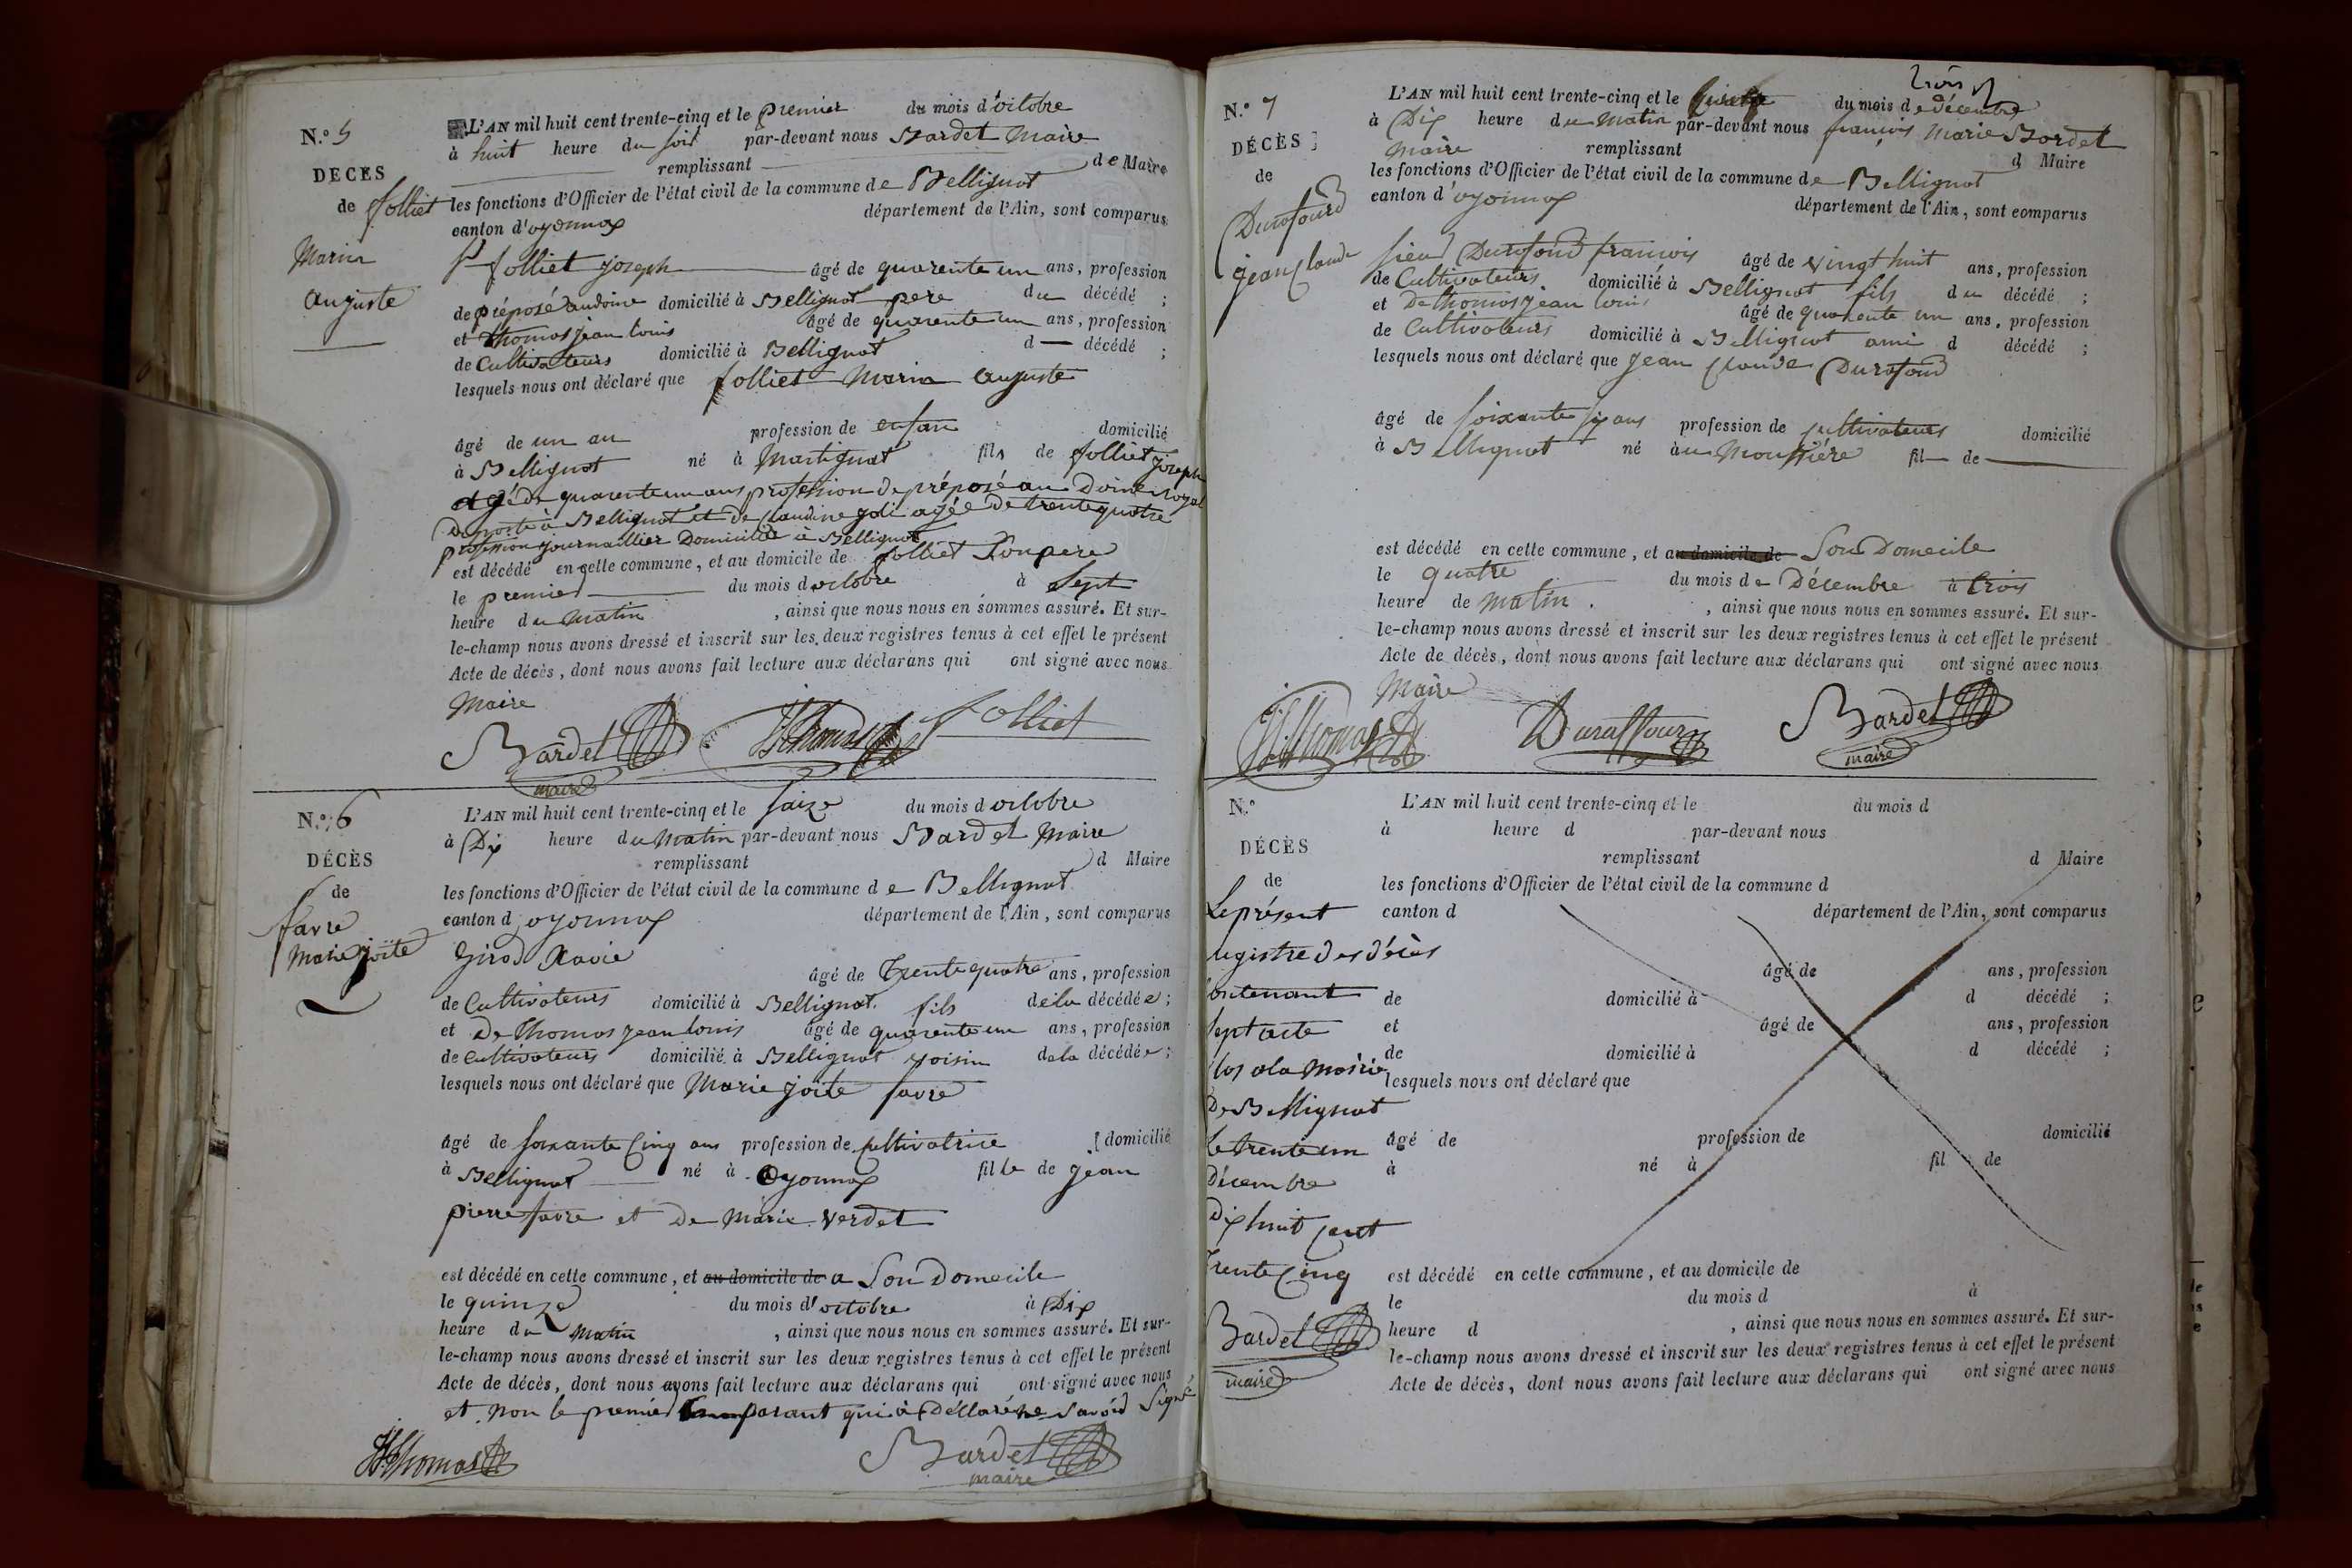 N.º 5
DECES
de folliet
Marin
auguste
L'AN mil huit cent trente-cinq et le premier du mois d'octobre
à huit heure du soir par-devant nous Bardet Maire
remplissant de Maire
les fonctions d'Officier de l'état civil de la commune de Bellignat
canton d'oyonnax département de l'Ain, sont comparus
Sr folliet joseph âgé de quarente un ans, profession
de préposé audoine domicilié à Bellignat pere du décédé ;
et thomas jean louis âgé de quarente un ans, profession
de Cultivateurs domicilié à Bellignat d décédé ;
lesquels nous ont déclaré que folliet Marin auguste
âgé de un an profession de enfan domicilié
à Bellignat né à Martignat fils de folliet joseph
agé de quarente un ans profession de préposé au Doine royal
De poste à Bellignat et de Claudine goli agée de trente quatre
profession journaillier Domiciliée à Bellignat
est décédé en celle commune, et au domicile de folliet Son pere
le premier du mois doctobre à Sept
heure du matin , ainsi que nous nous en sommes assuré. Et sur-
le-champ nous avons dressé et inscrit sur les deux registres tenus à cet effet le présent
Acte de décès, dont nous avons fait lecture aux déclarans qui ont signé avec nous
Maire
Bardet JLThomas folliet
maire
N.º 6
DÉCÈS
de
favre
Marie joite
L'AN mil huit cent trente-cinq et le saize du mois doctobre
à Dix heure du Matin par-devant nous Bardet Maire
remplissant d Maire
les fonctions d'Officier de l'état civil de la commune de Bellignat
canton d oyonnax département de l'Ain, sont comparus
Girod Xavie âgé de Trente quatre ans, profession
de Cultivateurs domicilié à Bellignat fils dela décédée ;
et De Thomas jean louis âgé de quarente un ans, profession
de cultivateurs domicilié à Bellignat voisin dela décédée ;
lesquels nous ont déclaré que Marie joite favre
âgé de soixante Cinq ans profession de cultivatrice domicilié
à Bellignat né à Oyonnax fille de jean
pierre favre et De Marie Verdet
est décédé en cette commune, et au domicile de a Son Domecile
le quinze du mois d'octobre à Dix
heure du Matin , ainsi que nous nous en sommes assuré. Et sur-
le-champ nous avons dressé et inscrit sur les deux registres tenus à cet effet le présent
Acte de décès, dont nous avons fait lecture aux déclarans qui ont signé avec nous
et non le premier Comparant qui à Déllaré ne savoir Signé
JLThomas Bardet
maire
N.º 7
DÉCÈS
de
Durofourd
jean Claude
trois
L'AN mil huit cent trente-cinq et le du mois de décembre
à Dix heure du Matin par-devant nous françois Marie Bardet
Maire remplissant d Maire
les fonctions d'Officier de l'état civil de la commune de Bellignat
canton d'oyonnax département de l'Ain, sont comparus
sieur Durofourd francois âgé de vingt huit ans, profession
de Cultivateurs domicilié à Bellignat fils du décédé ;
et De thomas jean louis âgé de quarente un ans, profession
de Cultivateurs domicilié à Bellignat ami d décédé ;
lesquels nous ont déclaré que jean Claude Durofourd
âgé de soixante six ans profession de cultivateurs domicilié
à Bellignat né àu Moussière fil de
est décédé en cette commune, et au domicile de Son Domecile
le quatre du mois de Décembre à trois
heure de matin , ainsi que nous nous en sommes assuré. Et sur-
le-champ nous avons dressé et inscrit sur les deux registres tenus à cet effet le présent
Acte de décès, dont nous avons fait lecture aux déclarans qui ont signé avec nous
Maire
JLThomas Duraffour Bardet
maire
N.º
DÉCÈS
de
Le présent
registre des décès
contenant
sept acte
clos a la Mairie
De Bellignat
le trente un
Décembre
Dix huit Cent
trente Cinq
Bardet
maire
L'AN mil huit cent trente-cinq et le du mois d
à heure d par-devant nous
remplissant d Maire
les fonctions d'Officier de l'état civil de la commune d
canton d département de l'Ain, sont comparus
âgé de ans, profession
de domicilié à d décédé ;
et âgé de ans, profession
de domicilié à d décédé ;
lesquels nous ont déclaré que
âgé de profession de domicilié
à né à fil de
est décédé en cette commune, et au domicile de
le du mois d à
heure d , ainsi que nous nous en sommes assuré. Et sur-
le-champ nous avons dressé et inscrit sur les deux registres tenus à cet effet le présent
Acte de décès, dont nous avons fait lecture aux déclarans qui ont signé avec nous